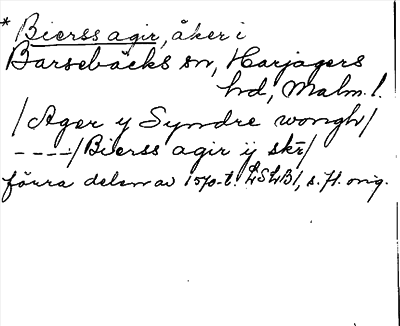 * Bierss agir, åker i
Barsebäcks sn, Harjagers
hd, Malm. l.
/Ager y Syndre wongh/
----/Bierss agir ij skr/
förra delen av 1570-t. LSLB1, s. 71. orig.